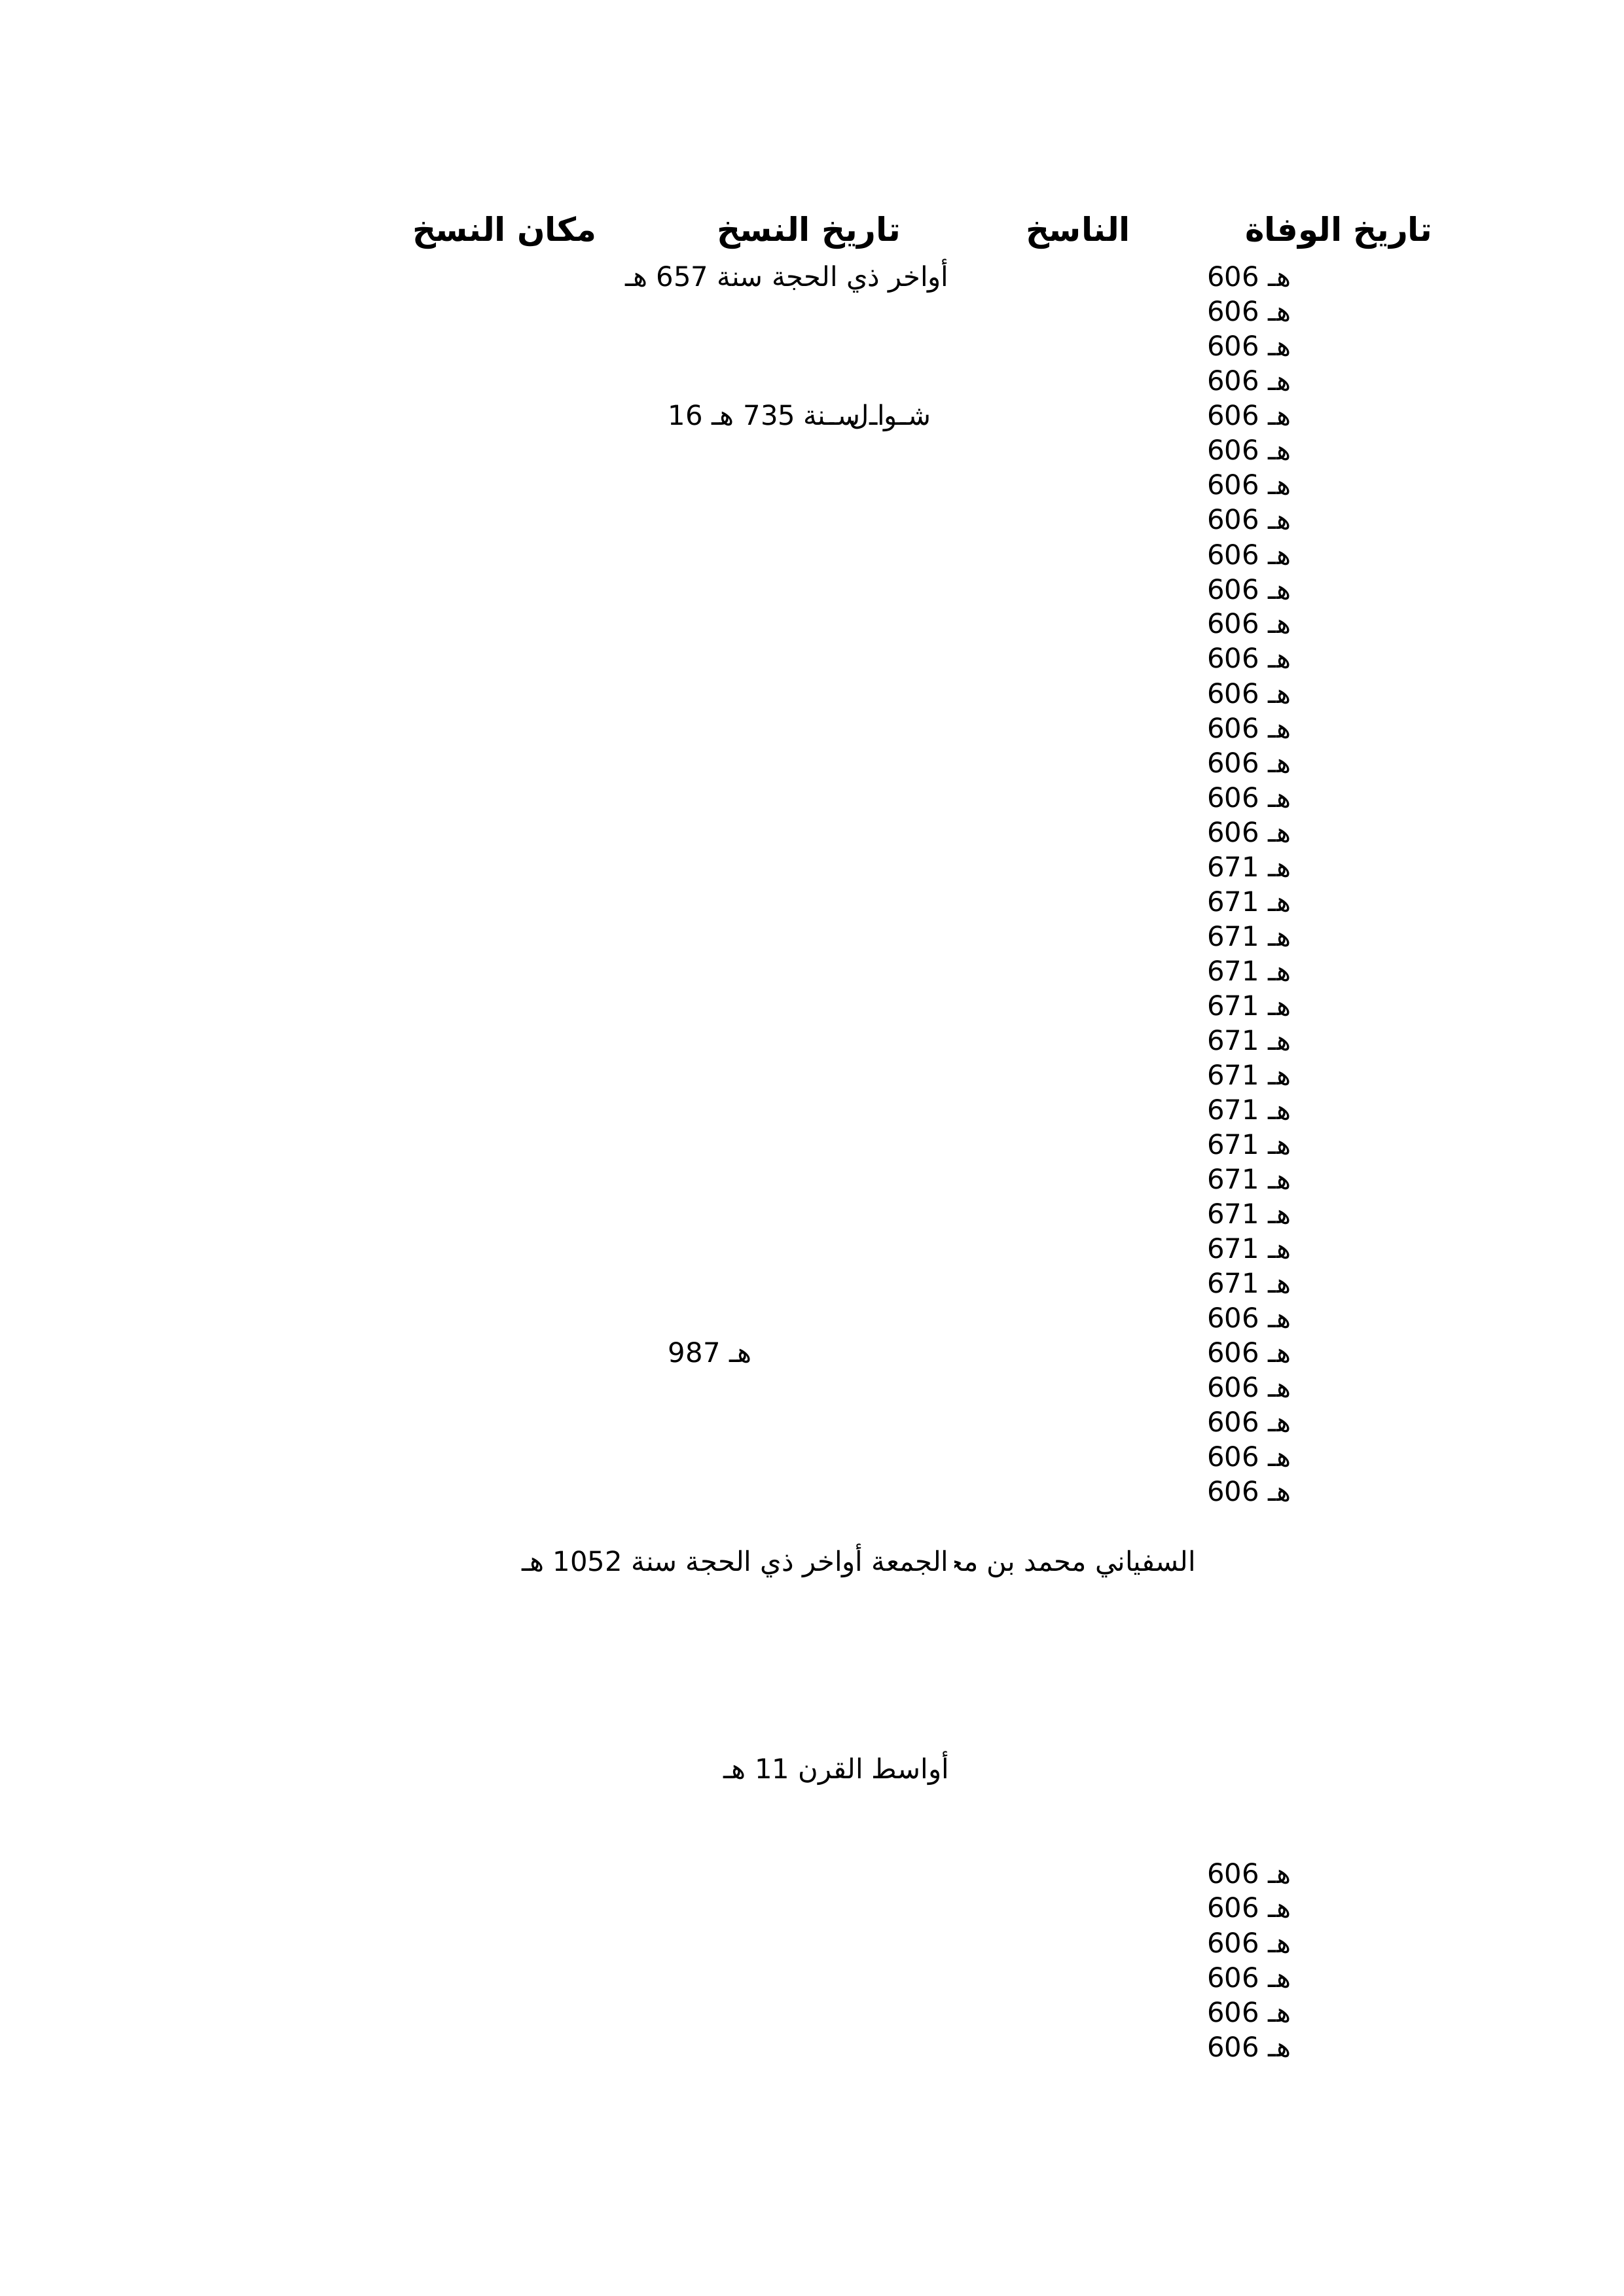 تاريخ الوفاة الناسخ تاريخ النسخ مكان النسخ
606 هـ أواخر ذي الحجة سنة 657 هـ
606 هـ
606 هـ
606 هـ
606 هـ 16 شوال سنة 735 هـ
606 هـ
606 هـ
606 هـ
606 هـ
606 هـ
606 هـ
606 هـ
606 هـ
606 هـ
606 هـ
606 هـ
606 هـ
671 هـ
671 هـ
671 هـ
671 هـ
671 هـ
671 هـ
671 هـ
671 هـ
671 هـ
671 هـ
671 هـ
671 هـ
671 هـ
606 هـ
606 هـ 987 هـ
606 هـ
606 هـ
606 هـ
606 هـ
السفياني محمد بن الجمعة أواخر ذي الحجة سنة 1052 هـ
أواسط القرن 11 هـ
606 هـ
606 هـ
606 هـ
606 هـ
606 هـ
606 هـ